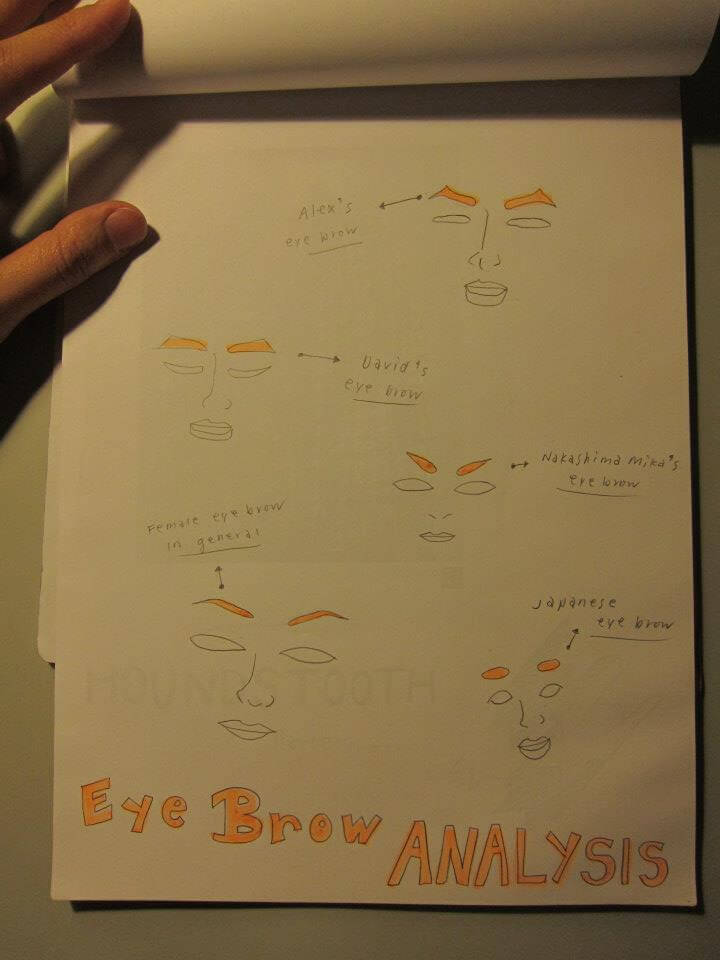 Alex's
eye brow
David's
eye brow
Nakashima Mika's
eye brow
Female eye brow
in general
Japanese
eye brow
HOUNDSTOOTH
Eye Brow ANALYSIS